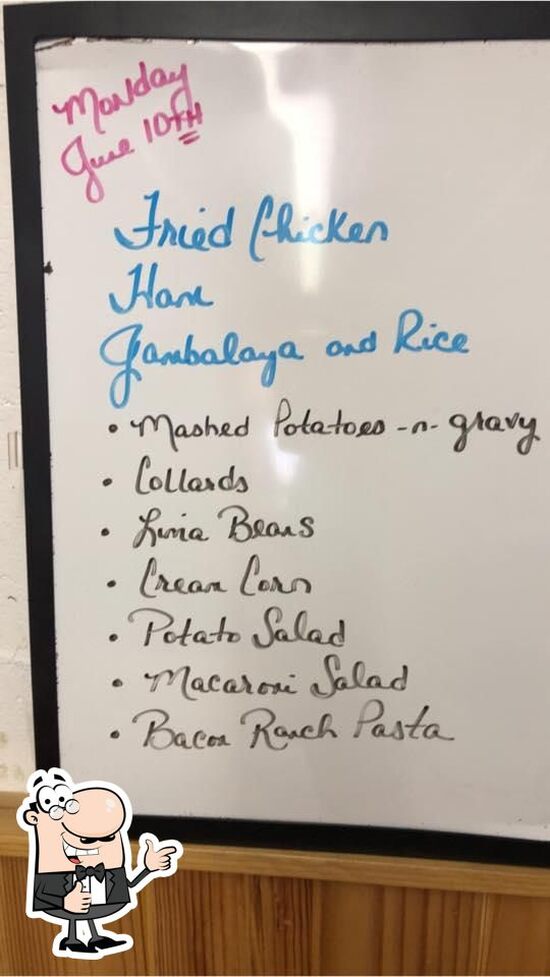 Monday
June 10TH
Fried Chicken
Ham
Jambalaya and Rice
• Mashed Potatoes -n- gravy
• Collards
• Lima Beans
• Cream Corn
• Potato Salad
• Macaroni Salad
• Bacon Ranch Pasta